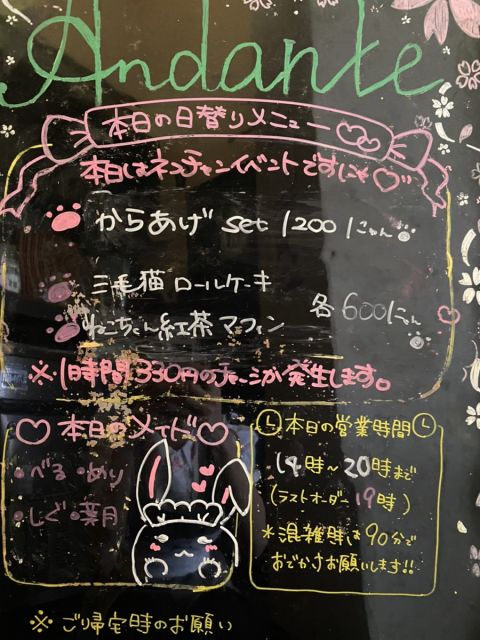 Andante
本日の日替りメニュー
本日はネコチャンイベントですにゃ♡
からあげ set 1200にゃん
三毛猫 ロールケーキ
ねこちゃん紅茶マフィン
各600にゃん
※1時間330円のチャージが発生します。
♡本日のメイド♡
・べる・めり
・しぐ・葉月
本日の営業時間
14時~20時まで
(ラストオーダー19時)
*混雑時は90分で
おでかけお願いします!!
※ご帰宅時のお願い